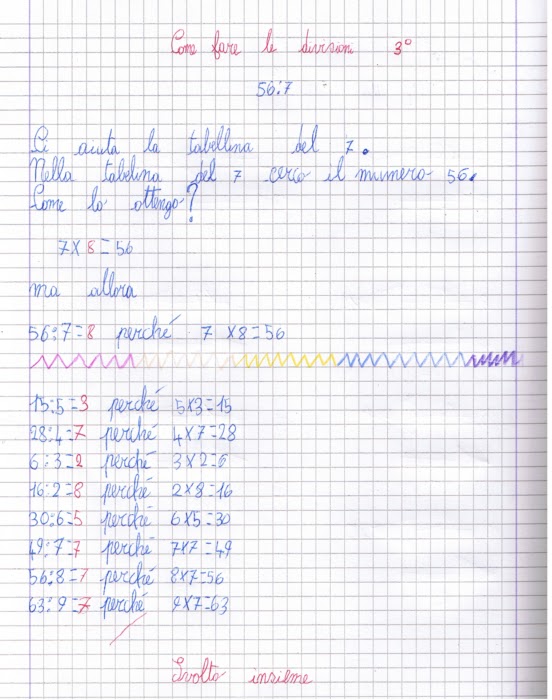 Come fare le divisioni 3°
56:7
Ci aiuta la tabellina del 7.
Nella tabelina del 7 cerco il numero 56.
Come lo ottengo?
7x8=56
ma allora
56:7=8 perché 7 x8=56
15:5=3 perché 5x3=15
28:4=7 perché 4x7=28
6:3=2 perché 3x2=6
16:2=8 perché 2x8=16
30:6=5 perché 6x5=30
49:7=7 perché 7x7=49
56:8=7 perché 8x7=56
63:9=7 perché 9x7=63
Svolto insieme